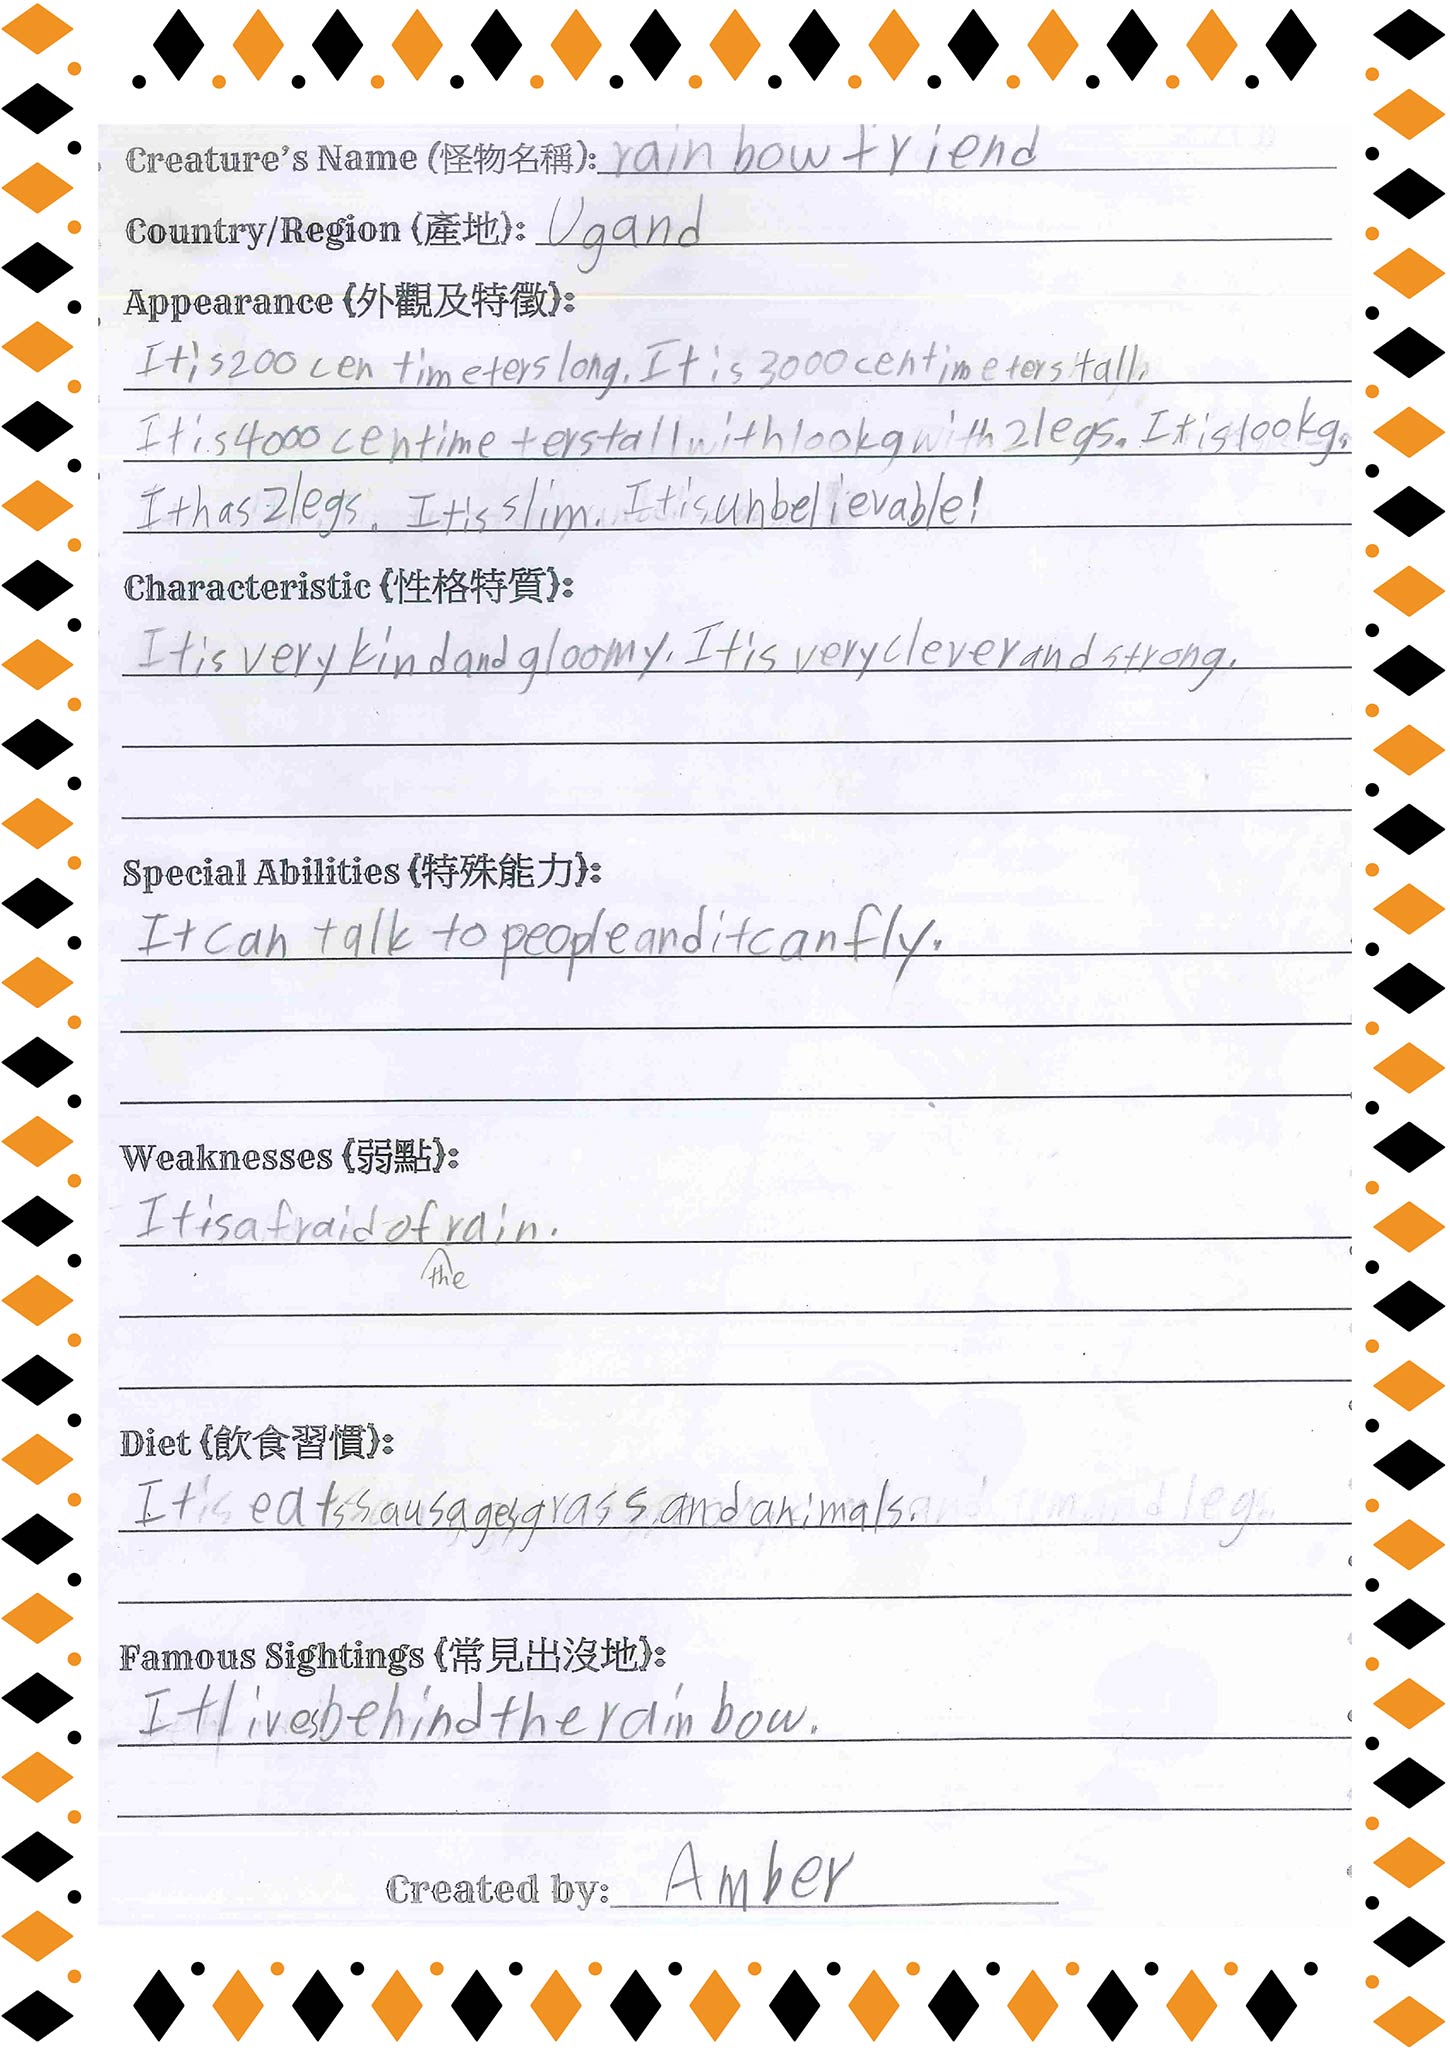 Creature's Name (怪物名稱): rainbow friend
Country/Region (產地): Ugand
Appearance (外觀及特徵):
It is 200 centimeters long. It is 3000 centimeters tall.
It is 4000 centimeters tall with 100kg with 2 legs. It is 100kg.
It has 2 legs. It is slim. It is unbelievable!
Characteristic (性格特質):
It is very kind and gloomy. It is very clever and strong.
Special Abilities (特殊能力):
It can talk to people and it can fly.
Weaknesses (弱點):
It is afraid of rain.
the
Diet (飲食習慣):
It eats sausages, grass and animals.
Famous Sightings (常見出沒地):
It lives behind the rainbow.
Created by: Amber